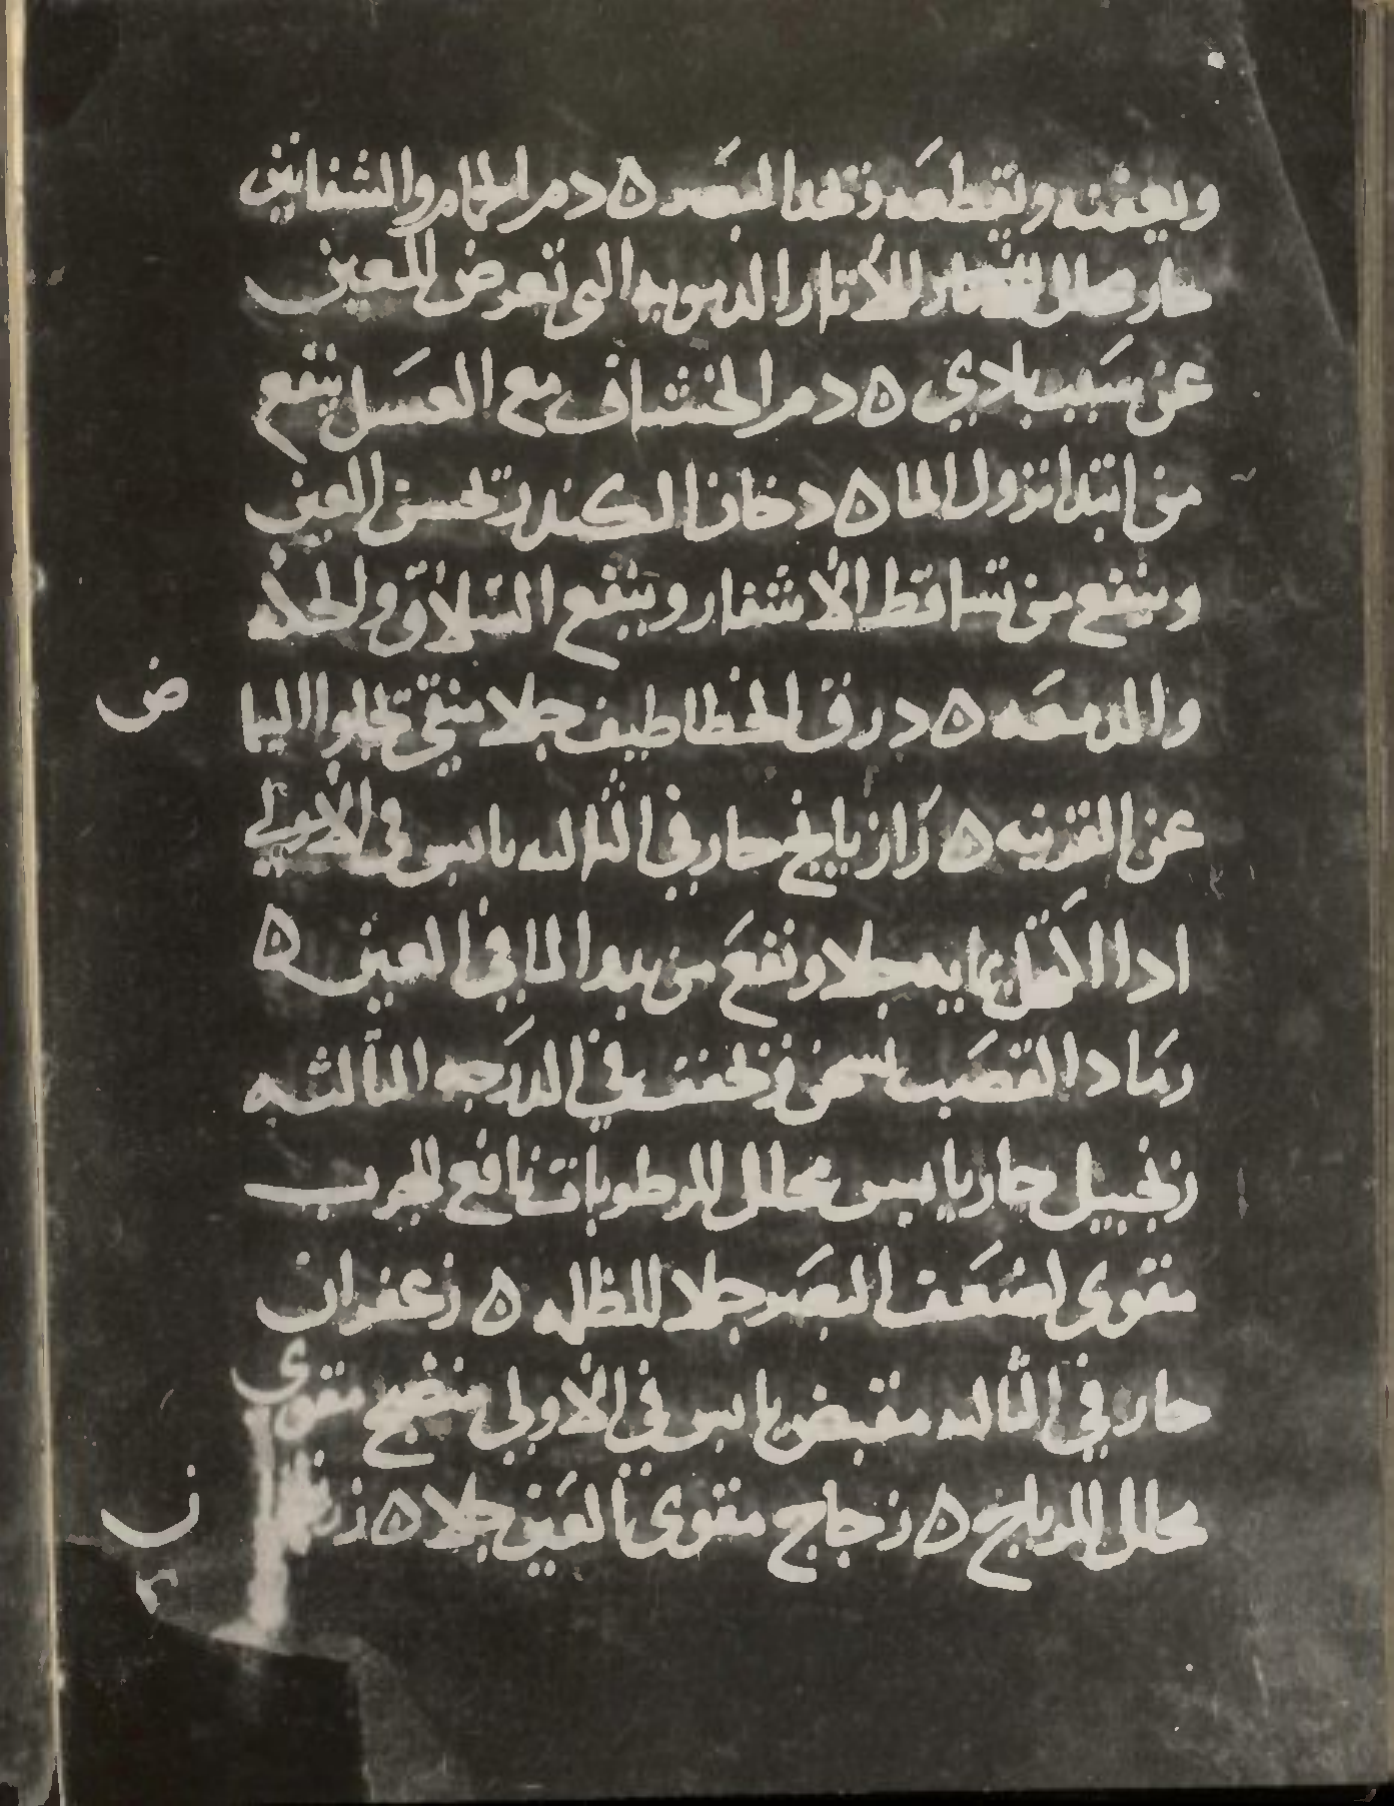 ويعفنه ويقطعه ويحد البصر ه دم الحمام والشفانين
حار محلل للأثار الدمويه التي تعرض للعين
عن سبب بادي ه دم الخشاف مع العسل ينفع
من ابتدا نزول الما ه دخان الكندر يحسن العين
وينفع من تساقط الاشفار وينفع السلاق والحكه
والدمعه ه درق الخطاطيف جلا منقي يجلوا البيا
ض
عن القرنيه ه رازيانج حار في الثالثه يابس في الاولي
اذا اكتحل بمايه جلا ونفع من بدو الما في العين ه
رماد القصب يسخن ويجفف في الدرجه الثالثه
زنجبيل حار يابس محلل للرطوبات نافع للجرب
مقوي لضعف البصر جلا للظلمه ه زعفران
حار في الثالثه مقبض يابس في الاولي منضج مقوي
محلل للرياح ه زجاج مقوي العين جلا ه